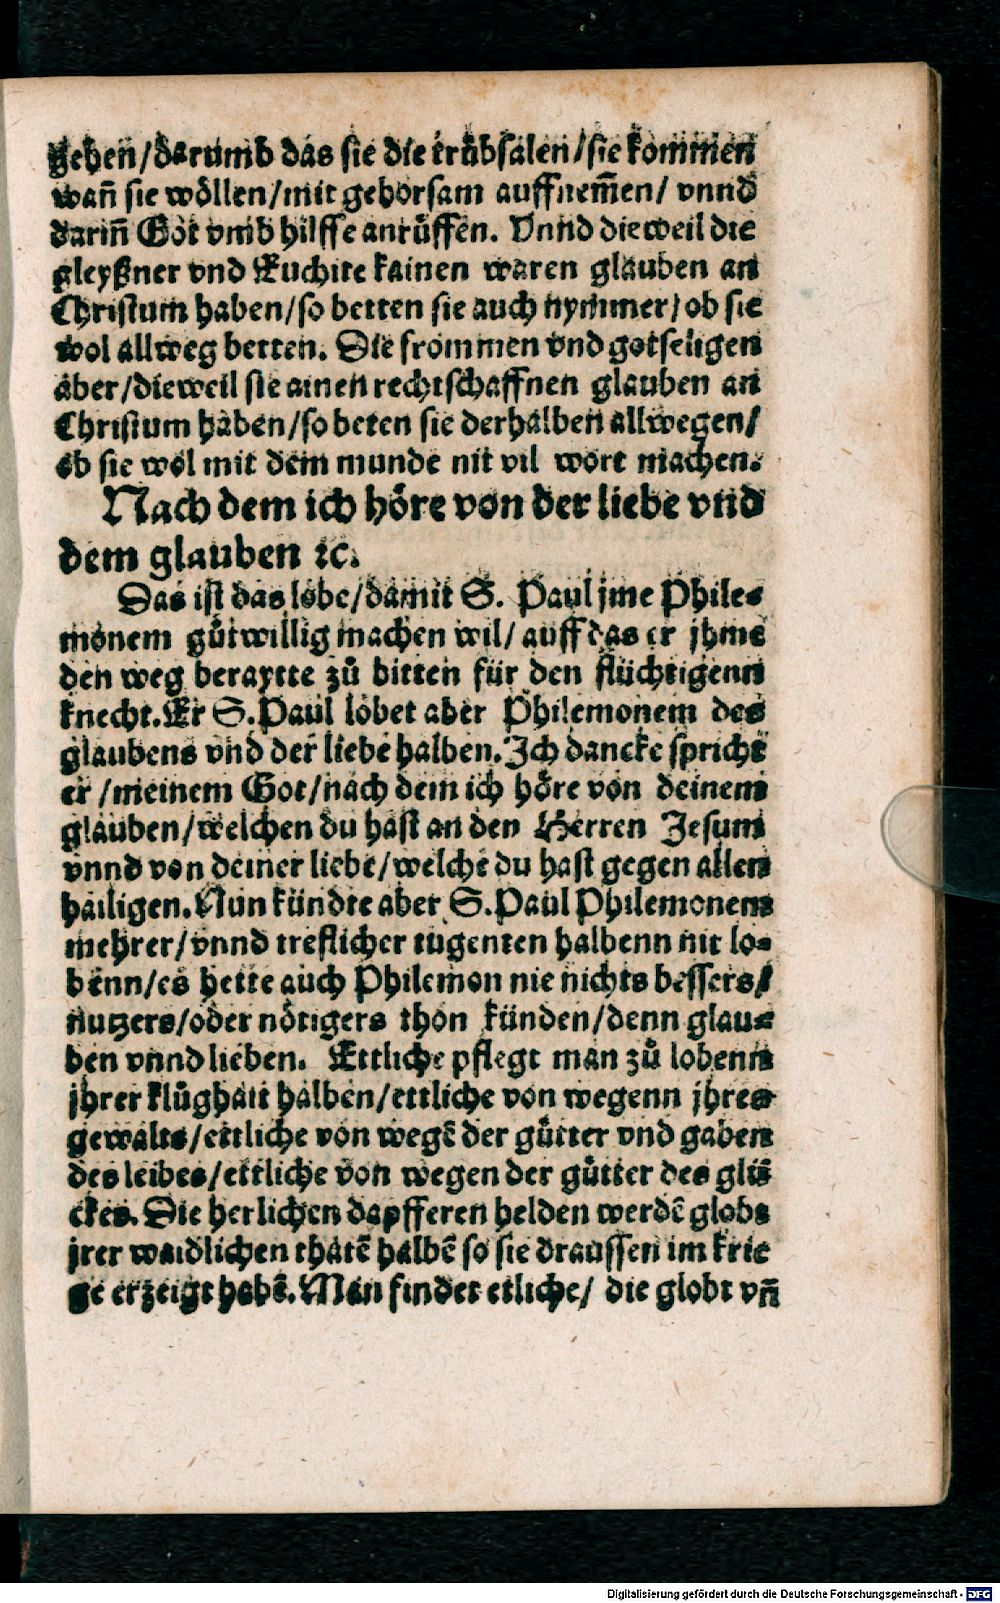 gehen/darumb das sie die trübsalen/sie kommen
wañ sie wöllen/mit gehorsam auffnem̃en/ vnnd
dariñ Got vmb hilffe anrüffen. Vnnd dieweil die
gleyßner vnd Euchite kainen waren glauben an
Christum haben/so betten sie auch nymmer/ob sie
wol allweg betten. Die frommen vnd gotseligen
aber/dieweil sie ainen rechtschaffnen glauben an
Christum haben/so beten sie derhalben allwegen/
ob sie wol mit dem munde nit vil wort machen.
Nach dem ich höre von der liebe vnd
dem glauben ⁊c.
Das ist das lobe/damit S. Paul jme Phile-
monem gůtwillig machen wil/ auff das er jhme
den weg beraytte zů bitten für den flüchtigenn
knecht. Er S. Paul lobet aber Philemonem des
glaubens vnd der liebe halben. Ich dancke spricht
er/meinem Got/nach dem ich höre von deinem
glauben/welchen du hast an den Herren Jesum
vnnd von deiner liebe/welche du hast gegen allen
hailigen. Nun kündte aber S. Paul Philemonem
mehrer/vnnd treflicher tugenten halbenn nit lo-
benn/es hette auch Philemon nie nichts bessers/
nutzers/oder nötigers thon künden/denn glau-
ben vnnd lieben. Ettliche pflegt man zů lobenn
jhrer klůghait halben/ettliche von wegenn jhres
gewalts/ettliche von wegē der gütter vnd gaben
des leibes/ettliche von wegen der gütter des glü
ckes. Die herlichen dapfferen helden werdē globt
jrer waidlichen thatē halbē so sie draussen im krie
ge erzeigt habē. Man findet etliche/ die globt vñ
Digitalisierung gefördert durch die Deutsche Forschungsgemeinschaft - DFG